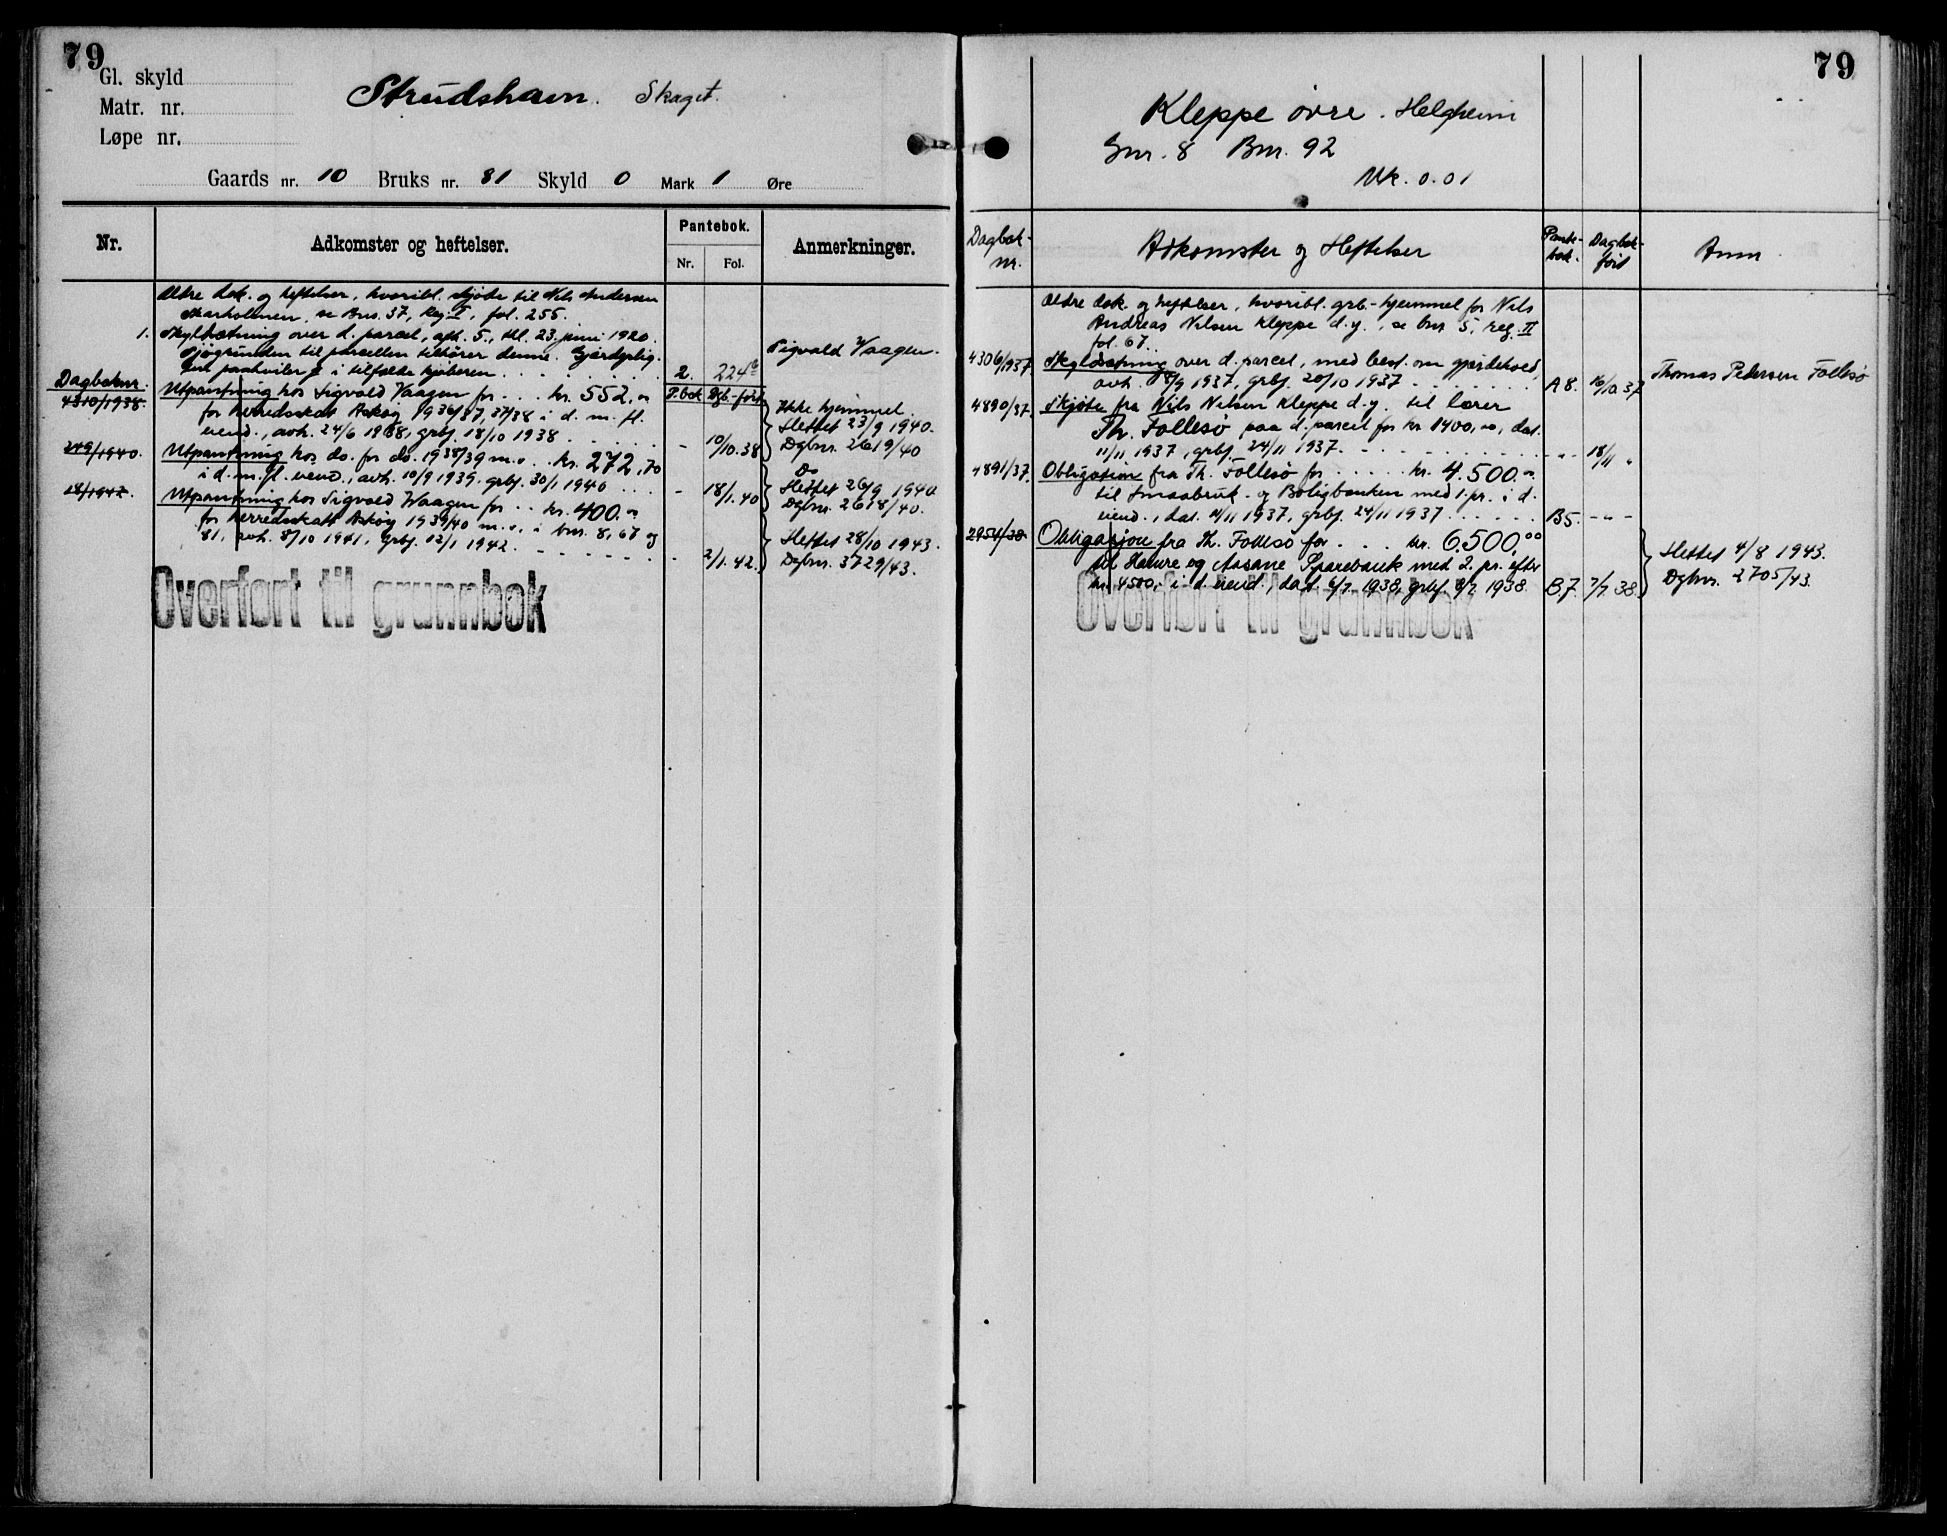 79
Gl. skyld
Matr. nr.
Løpe nr.
Strudshavn. Skaget.
Gaards nr. 10 Bruks nr. 81 Skyld 0 Mark 1 Øre
Nr.
Adkomster og heftelser.
Pantebok.
Nr. Fol.
Anmerkninger.
Ældre dok. og heftelser, hvoribl. skjøde til Nils Andersen
Skarholmen, se Bnr. 37, Reg. I, fol. 255.
1. Skyldsætning over d. parcel, afh. 5., thl. 23. juni 1920.
Sjøgrunden til parcellen tilhører denne. Gjærdeplig-
ten paahviler i tilfælde kjøberen 2. 224b
Sigvald Vaagen.
Dagboknr. P.bok Dgb-ført
4310/1938. Utpantning hos Sigvald Vaagen for . . . kr. 552,00
for herredsskat Askøy 1936/37, 37/38 i d. m. fl.
eiend., avh. 24/6 1938, grbf. 18/10 1938 - 10/10.38
Ikke hjemmel.
Slettet 23/9 1940.
Dgbnr. 2619/40
249/1940. Utpantning hos do. for do. 1938/39 m.v. . . kr. 272,70
i d. m. fl. eiend., avh. 10/9 1939, grbf. 30/1 1940 - 18/1.40
Do
Slettet 26/9 1940.
Dgbnr. 2618/40.
28/1942. Utpantning hos Sigvald Waagen for . . kr. 400,00
for herredsskatt Askøy 1939/40 m.v. i bnr. 8, 67 og
81, avh. 8/10 1941, grbf. 12/1 1942. - 2/1.42.
Slettet 28/10 1943.
Dgbnr. 3729/43.
Overført til grunnbok
79
Kleppe øvre. Helgheim
Gnr. 8 Bnr. 92
Mk. 0.01
Dagbok-
nr.
Adkomster og Heftelser
Pante-
bok.
Dagbok-
ført
Anm.
Ældre dok. og heftelser, hvoribl. grb-hjemmel for Nils
Andreas Nilsen Kleppe d.y., se bnr 5, reg. II
fol. 67.
4306/1937 Skyldsætning over d. parcel, med best. om gjærdehold,
avh. 18/9 1937, grbf. 20/10 1937 A 8. 16/10.37
Thomas Pedersen Follesø
4890/37. Skjøte fra Nils Nilsen Kleppe d.y. til lærer
Th. Follesø paa d. parcel for kr 1400,00, dat.
11/11 1937, grbf. 24/11 1937. - - - 18/11 "
4891/37. Obligation fra Th. Follesø for . . . . . kr. 4.500,00
til Smaabruk- og Boligbanken med 1. pr. i d.
eiend., dat. 11/11 1937, grbf. 24/11 1937 B5. - - -
2954/38 Obligasjon fra Th. Follesø for . . . . kr. 6.500,00
til Hamre og Aasane Sparebank med 2. pr. efter
kr. 4500,- i d. eiend., dat. 6/7. 1938, grbf. 8/7 1938. B.7. 7/7.38
Slettet 4/8 1943.
Dgbnr. 2705/43.
Overført til grunnbok